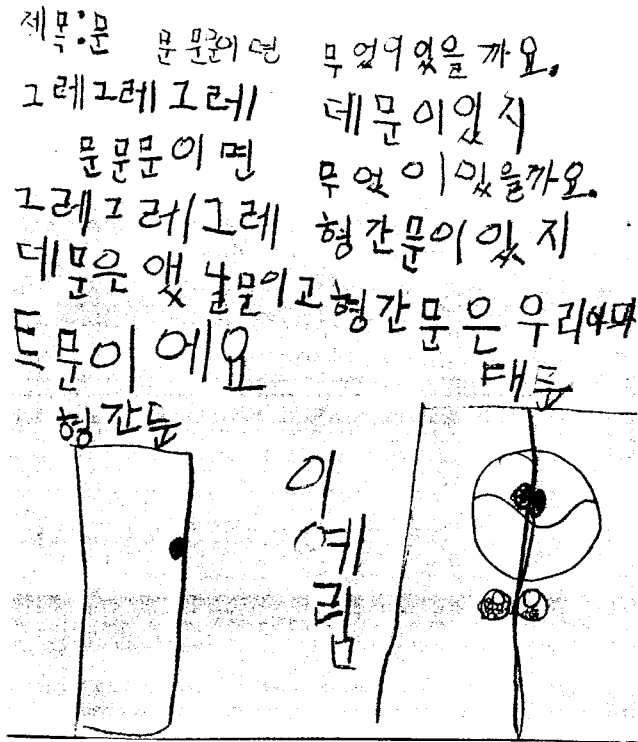 제목:문
문문문이면 무엇이있을까요.
그레그레그레 데문이있지
문문문이면 무엇이있을까요.
그레그레그레 형간문이있지
데문은 앳날문이고 형간문은 우리아파
트문이에요
형간문
때문
이예림